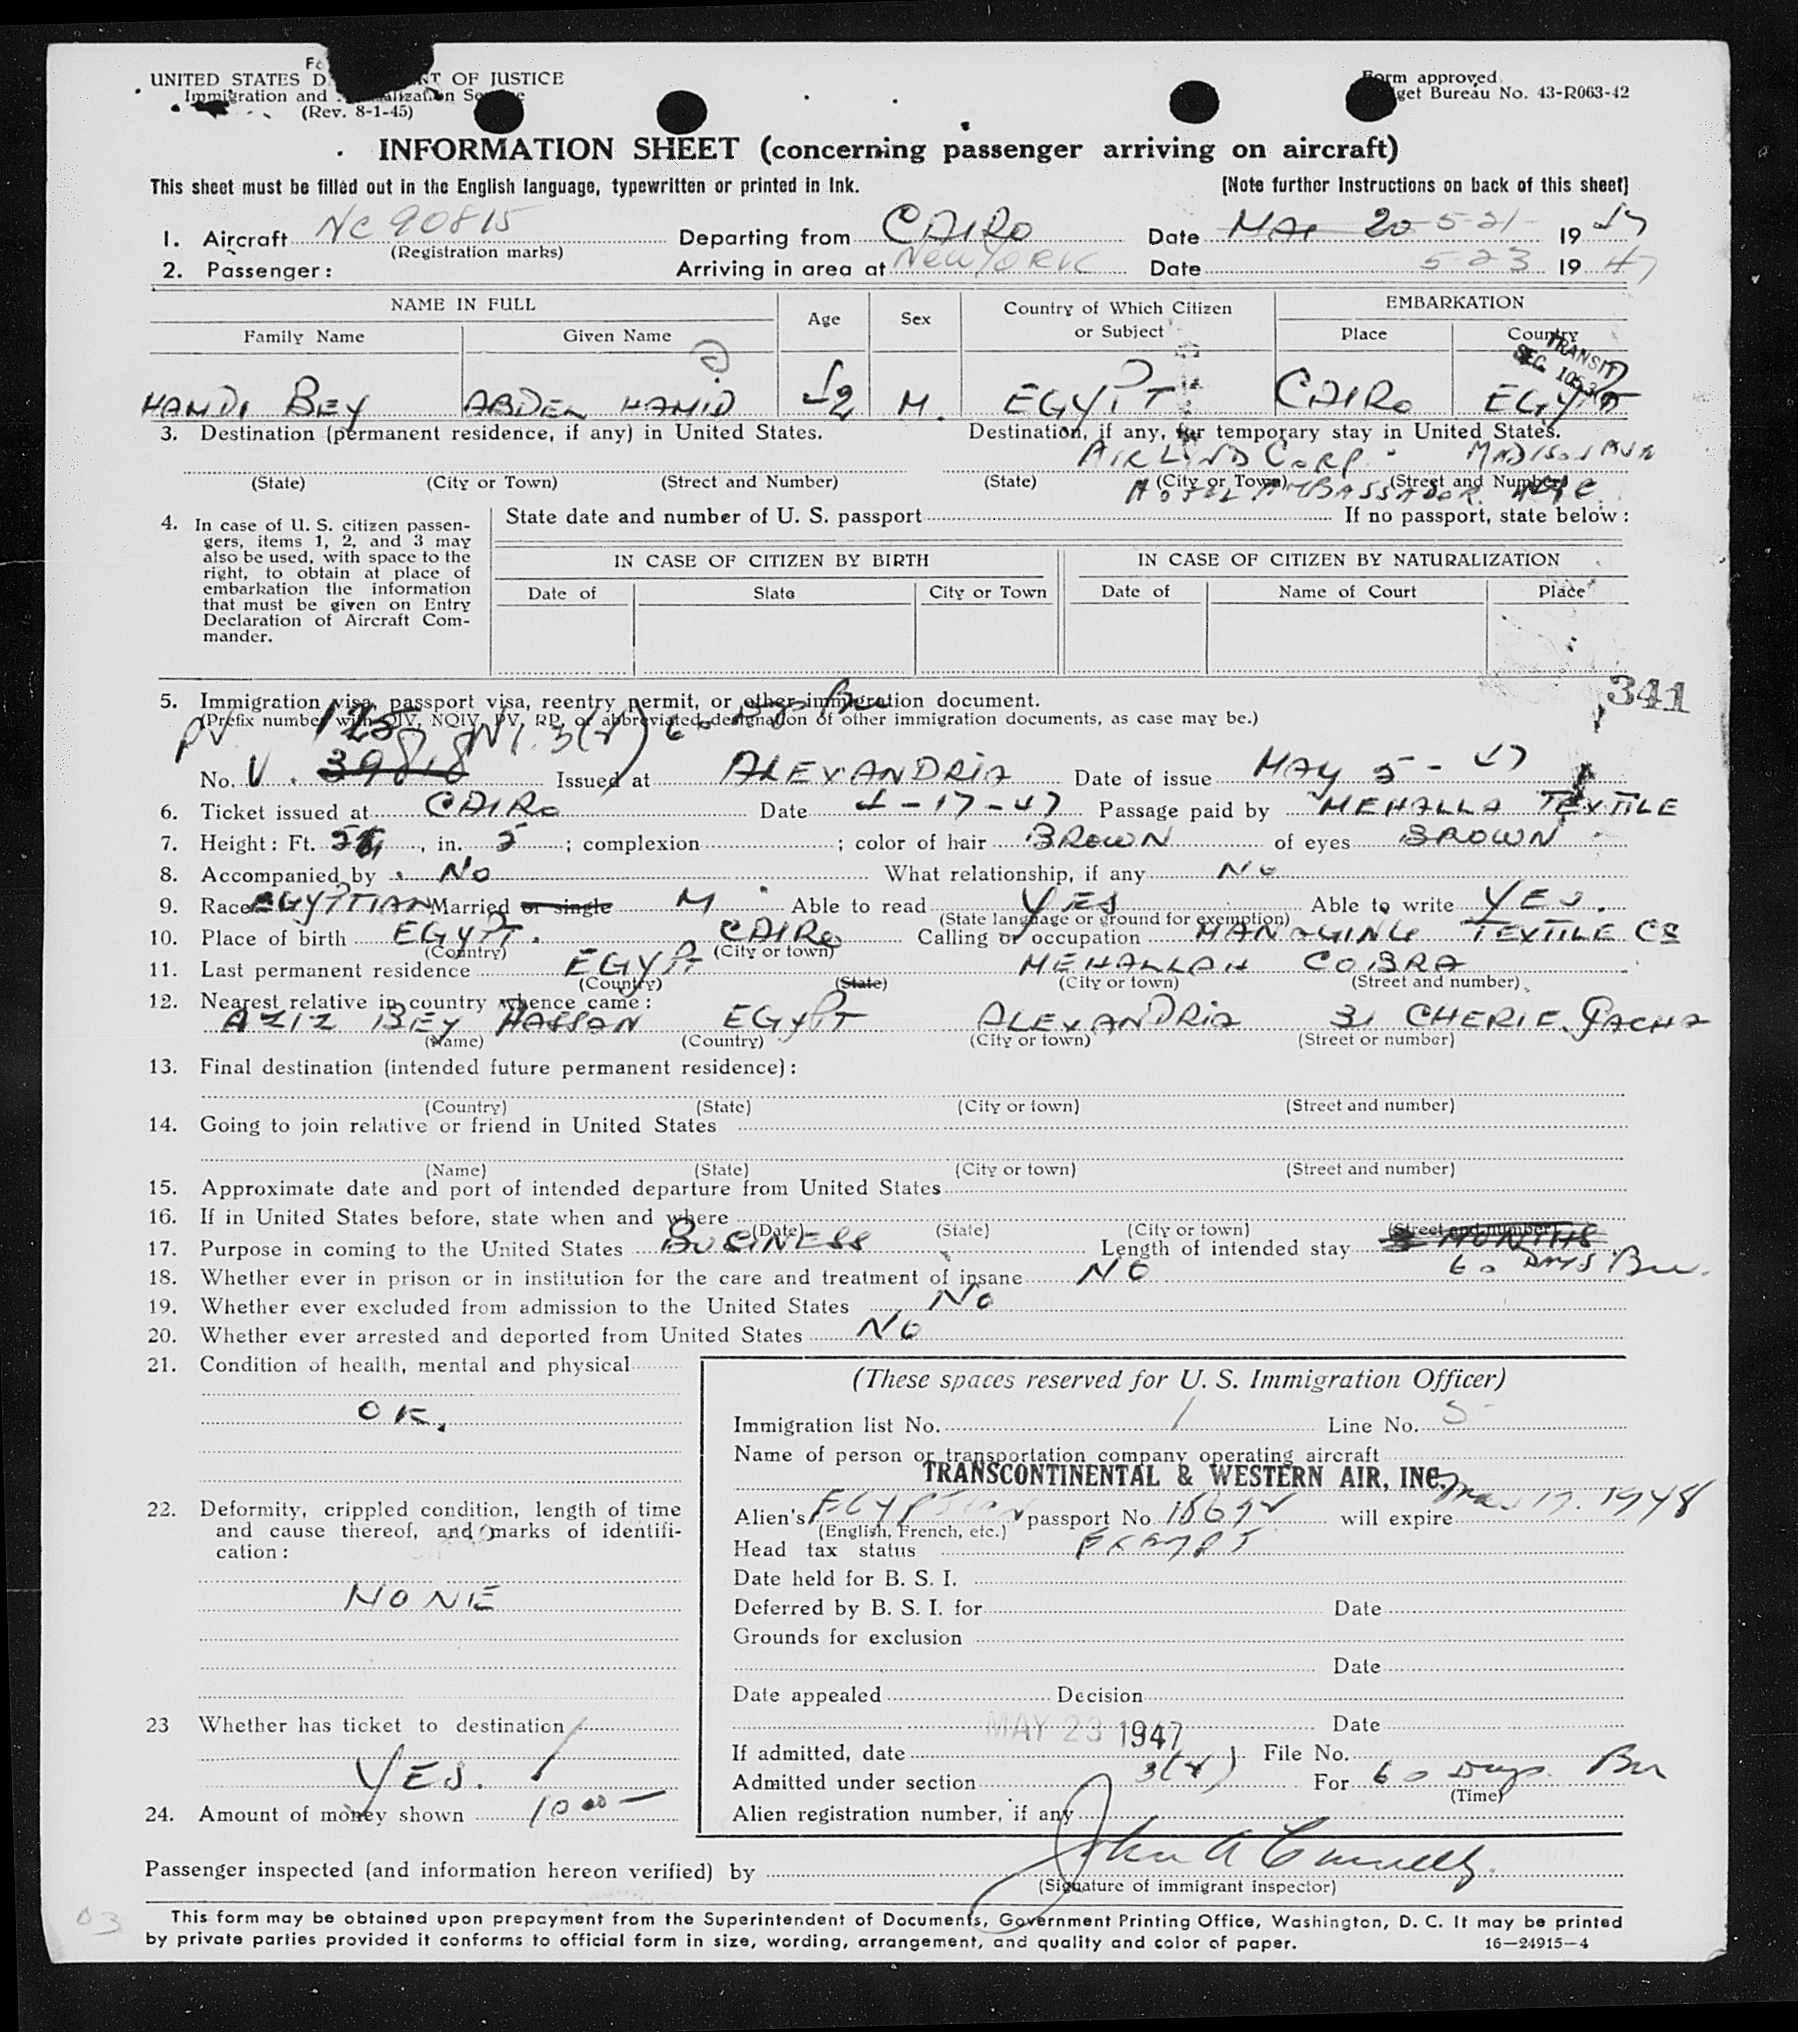 UNITED STATES D NT OF JUSTICE
Immigration and
(Rev. 8-1-45)
Form approved
get Bureau No. 43-R063-42
INFORMATION SHEET (concerning passenger arriving on aircraft)
This sheet must be filled out in the English language, typewritten or printed in Ink.
[Note further Instructions on back of this sheet]
1. Aircraft NC 90815 Departing from CAIRO Date 20 5-21- 19 47
(Registration marks)
2. Passenger: Arriving in area at New YORK Date 5-23 19 47
NAME IN FULL Age Sex Country of Which Citizen or Subject EMBARKATION
Family Name Given Name Place Country
TRANSIT
SEC.
HAMDI BEY ABDEL HAMID 42 M. EGYPT CAIRO EGYPT
3. Destination (permanent residence, if any) in United States. Destination, if any, for temporary stay in United States.
AIRLIND CORP. MADISON AVN
(State) (City or Town) (Street and Number) (State) (City or Town) (Street and Number)
HOTEL AMBASSADOR NYC
4. In case of U. S. citizen passen-
gers, items 1, 2, and 3 may
also be used, with space to the
right, to obtain at place of
embarkation the information
that must be given on Entry
Declaration of Aircraft Com-
mander.
State date and number of U. S. passport If no passport, state below:
IN CASE OF CITIZEN BY BIRTH IN CASE OF CITIZEN BY NATURALIZATION
Date of State City or Town Date of Name of Court Place
341
5. Immigration visa, passport visa, reentry permit, or other immigration document.
(Prefix number with QIV, NQIV, PV, RP, or abbreviated designation of other immigration documents, as case may be.)
PV 125 3(2) 60 Days
No. V. 39818 Issued at ALEXANDRIA Date of issue MAY 5 - 47
6. Ticket issued at CAIRO Date 4-17-47 Passage paid by MEHALLA TEXTILE
7. Height: Ft. 5, in. 5; complexion ; color of hair BROWN of eyes BROWN
8. Accompanied by NO What relationship, if any NO
9. Race EGYPTIAN Married or single M Able to read YES Able to write YES.
(State language or ground for exemption)
10. Place of birth EGYPT. CAIRO Calling or occupation MANAGING TEXTILE Co
(Country) (City or town)
11. Last permanent residence EGYPT MEHALLAH COBRA
(Country) (State) (City or town) (Street and number)
12. Nearest relative in country whence came:
AZIZ BEY HASSAN EGYPT ALEXANDRIA 31 CHERIF PACHA
(Name) (Country) (City or town) (Street or number)
13. Final destination (intended future permanent residence):
(Country) (State) (City or town) (Street and number)
14. Going to join relative or friend in United States
(Name) (State) (City or town) (Street and number)
15. Approximate date and port of intended departure from United States
16. If in United States before, state when and where
(Date) (State) (City or town) (Street and number)
17. Purpose in coming to the United States BUSINESS Length of intended stay MONTHS
60 DAYS
18. Whether ever in prison or in institution for the care and treatment of insane NO
19. Whether ever excluded from admission to the United States NO
20. Whether ever arrested and deported from United States NO
21. Condition of health, mental and physical
OK.
22. Deformity, crippled condition, length of time
and cause thereof, and marks of identifi-
cation:
NONE
23 Whether has ticket to destination
YES.
24. Amount of money shown 1000—
(These spaces reserved for U. S. Immigration Officer)
Immigration list No. 1 Line No. 5
Name of person or transportation company operating aircraft
TRANSCONTINENTAL & WESTERN AIR, INC.
Alien's EGYPTIAN passport No. 18692 will expire Mar 17. 1948
(English, French, etc.)
Head tax status EXEMPT
Date held for B. S. I.
Deferred by B. S. I. for Date
Grounds for exclusion
Date
Date appealed Decision
Date
MAY 23 1947
If admitted, date File No.
Admitted under section 3(2) For 60 Days
(Time)
Alien registration number, if any
Passenger inspected (and information hereon verified) by John A Connelly
(Signature of immigrant inspector)
03
This form may be obtained upon prepayment from the Superintendent of Documents, Government Printing Office, Washington, D. C. It may be printed
by private parties provided it conforms to official form in size, wording, arrangement, and quality and color of paper. 16—24915-4